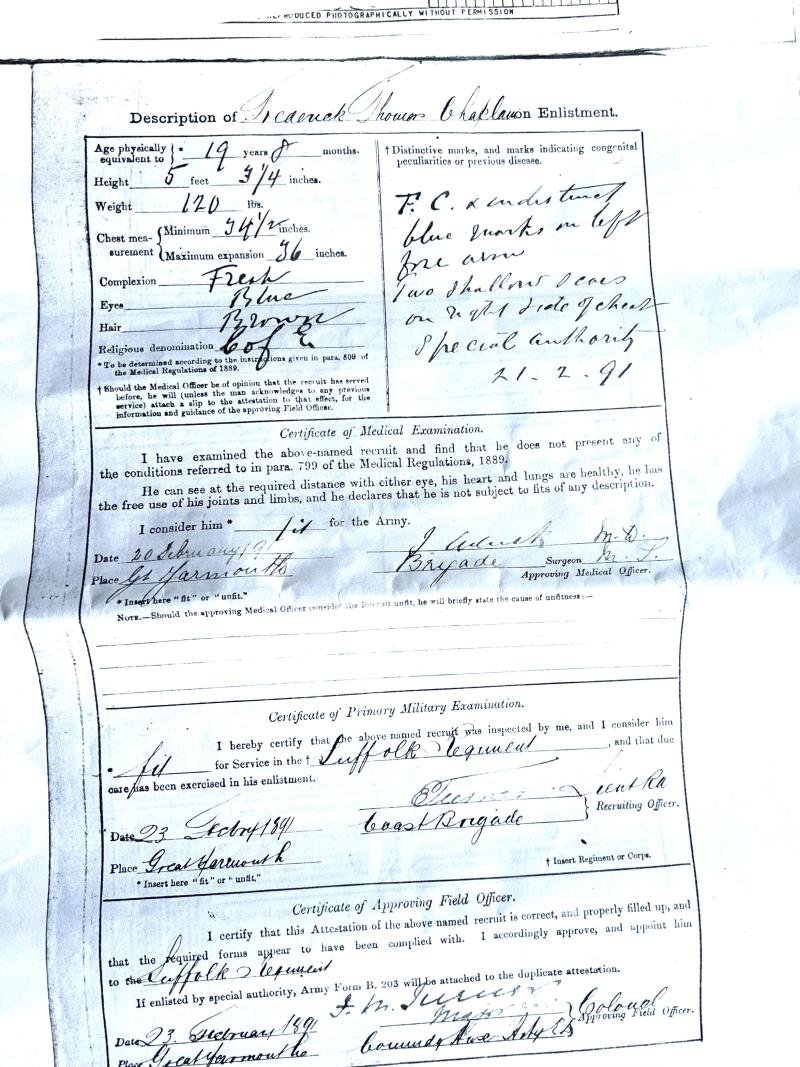 REPRODUCED PHOTOGRAPHICALLY WITHOUT PERMISSION
Description of Frederick Thomas Chaplain on Enlistment.
Age physically equivalent to * 19 years 8 months.
Height 5 feet 3 1/4 inches.
Weight 120 lbs.
Chest measurement Minimum 34 1/2 inches.
Maximum expansion 36 inches.
Complexion Fresh
Eyes Blue
Hair Brown
Religious denomination C of E
* To be determined according to the instructions given in para. 809 of
the Medical Regulations of 1889.
† Should the Medical Officer be of opinion that the recruit has served
before, he will (unless the man acknowledges to any previous
service) attach a slip to the attestation to that effect, for the
information and guidance of the approving Field Officer.
† Distinctive marks, and marks indicating congenital
peculiarities or previous disease.
F. C. & indistinct
blue marks on left
fore arm
Two shallow scars
on right side of chest
Special authority
21-2-91
Certificate of Medical Examination.
I have examined the above-named recruit and find that he does not present any of
the conditions referred to in para. 799 of the Medical Regulations, 1889.
He can see at the required distance with either eye, his heart and lungs are healthy, he has
the free use of his joints and limbs, and he declares that he is not subject to fits of any description.
I consider him * fit for the Army.
Date 20 February 91
M.D.
Place Gt Yarmouth
Brigade Surgeon M.S.
Approving Medical Officer.
* Insert here "fit" or "unfit."
NOTE.—Should the approving Medical Officer consider the Recruit unfit, he will briefly state the cause of unfitness:—
Certificate of Primary Military Examination.
I hereby certify that the above named recruit was inspected by me, and I consider him
* fit for Service in the † Suffolk Regiment, and that due
care has been exercised in his enlistment.
Recruiting Officer.
Date 23 Febry 1891
Coast Brigade
Place Great Yarmouth
* Insert here "fit" or "unfit."
† Insert Regiment or Corps.
Certificate of Approving Field Officer.
I certify that this Attestation of the above named recruit is correct, and properly filled up, and
that the required forms appear to have been complied with. I accordingly approve, and appoint him
to the Suffolk Regiment
If enlisted by special authority, Army Form B. 203 will be attached to the duplicate attestation.
Colonel
Approving Field Officer.
Date 23 February 1891
Place Great Yarmouth